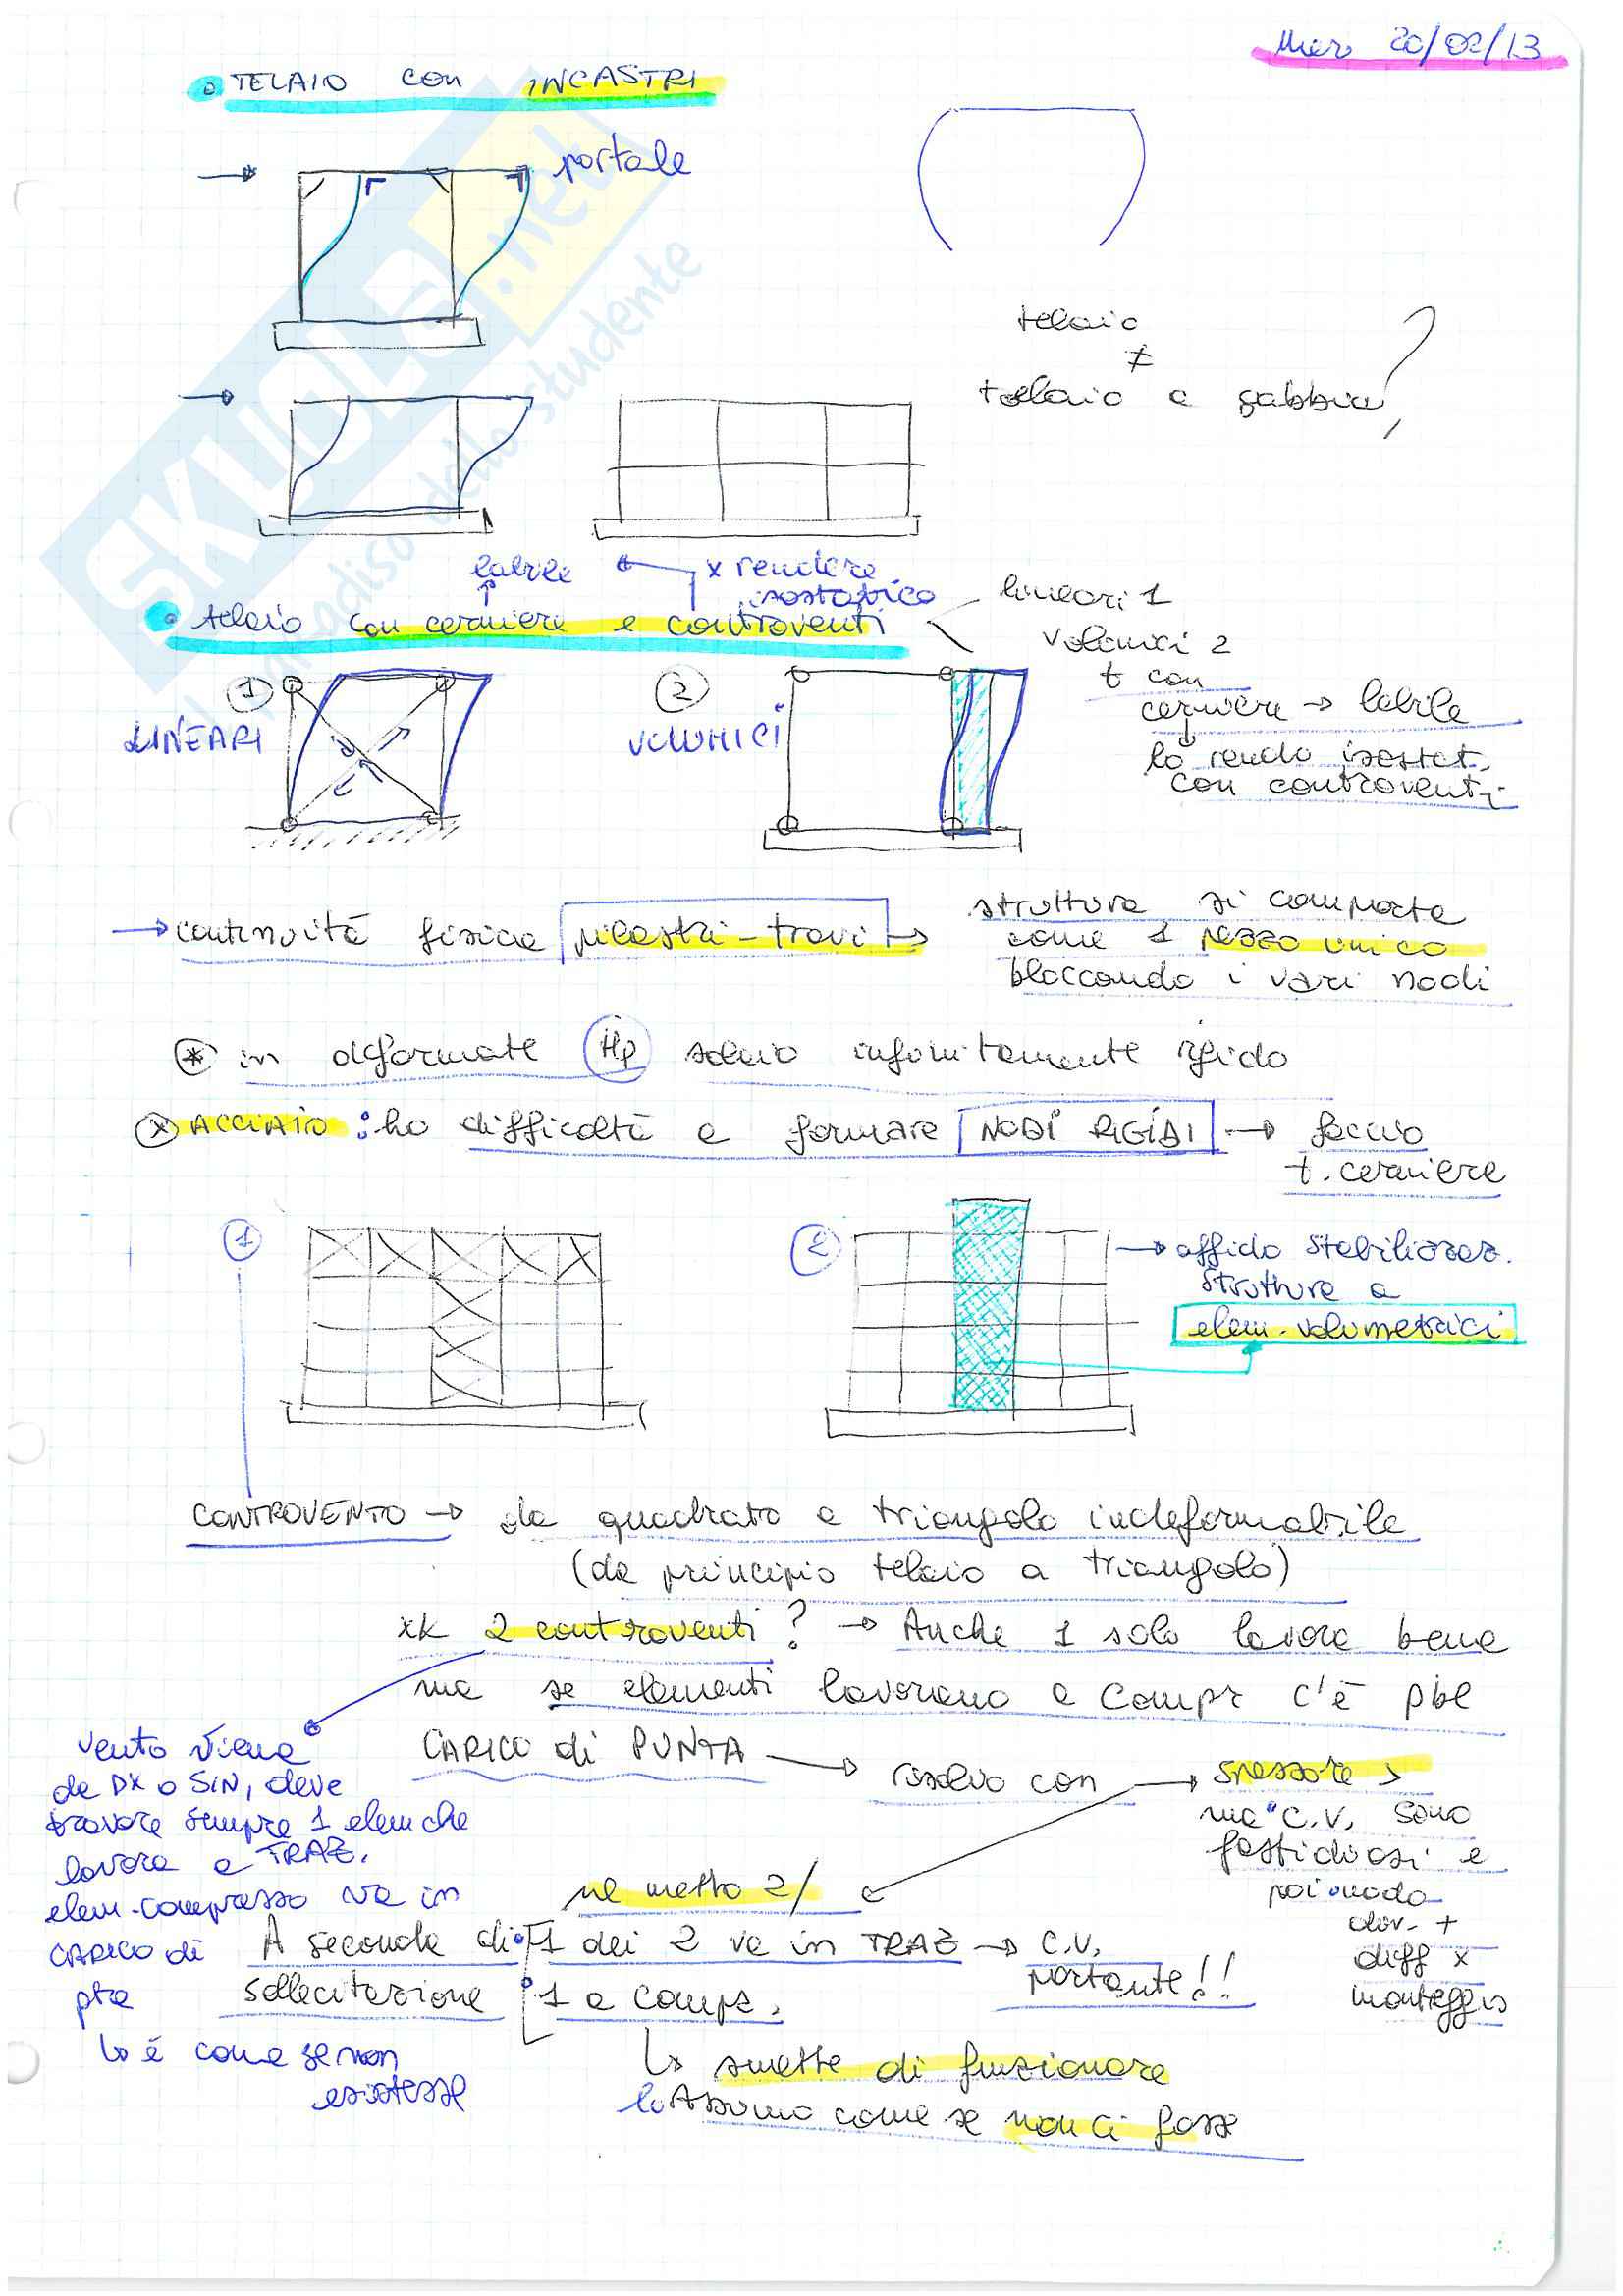 Mer 20/02/13
TELAIO con INCASTRI
portale
telaio
≠
telaio a gabbia?
labile ← x rendere
isostatico
telaio con cerniere e controventi
lineari 1
volumici 2
t con
cerniere → labile
lo rendo isostat.
con controventi
1
LINEARI
2
VOLUMICI
→ continuità fisica pilastri-travi →
struttura si comporta
come 1 pezzo unico
bloccando i vari nodi
* in deformate Hp solaio infinitamente rigido
* ACCIAIO: ho difficoltà a formare NODI RIGIDI → faccio
t. cerniere
1
2
→ affido stabilizzaz.
struttura a
elem. volumetrici
CONTROVENTO → da quadrato a triangolo indeformabile
(da principio telaio a triangolo)
xk 2 controventi? → Anche 1 solo lavora bene
ma se elementi lavorano a compr c'è pbl
CARICO di PUNTA → risolvo con → spessore >
ma C.V. sono
fastidiosi e
poi nodo
div. +
diff x
montaggio
vento viene
da DX o SIN, deve
trovare sempre 1 elem che
lavora a TRAZ.
elem. compresso va in
CARICO di
pta
↳ è come se non
esistesse
ne metto 2/
A seconda di
sollecitazione
1 dei 2 va in TRAZ → C.V.
portante!!
1 a compr.
↳ smette di funzionare
lo Assumo come se non ci fosse
SKUOLA.net
il paradiso dello studente